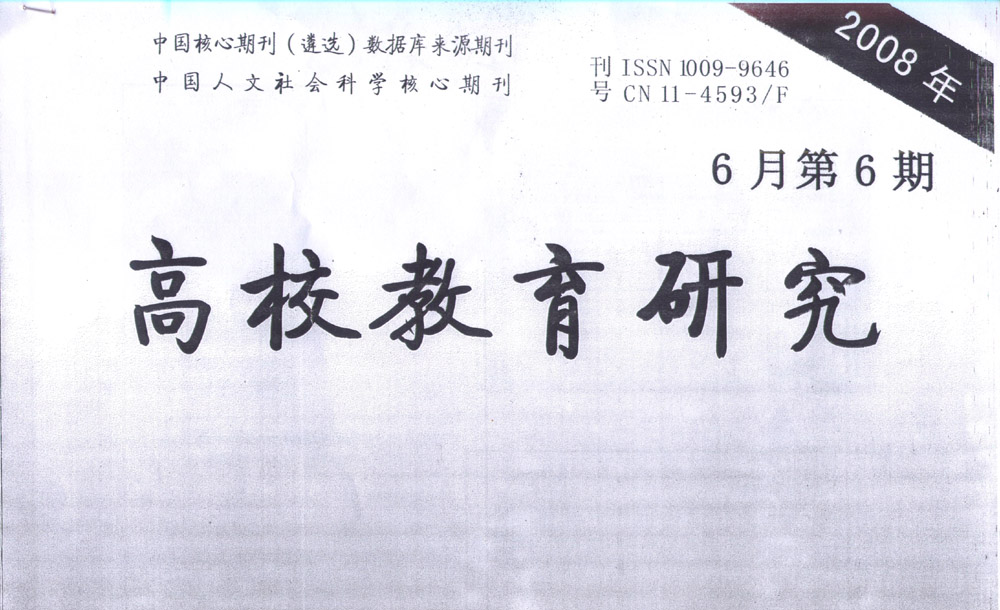 中国核心期刊（遴选）数据库来源期刊
中国人文社会科学核心期刊
刊号 ISSN 1009-9646
CN 11-4593/F
2008年
6月第6期
高校教育研究